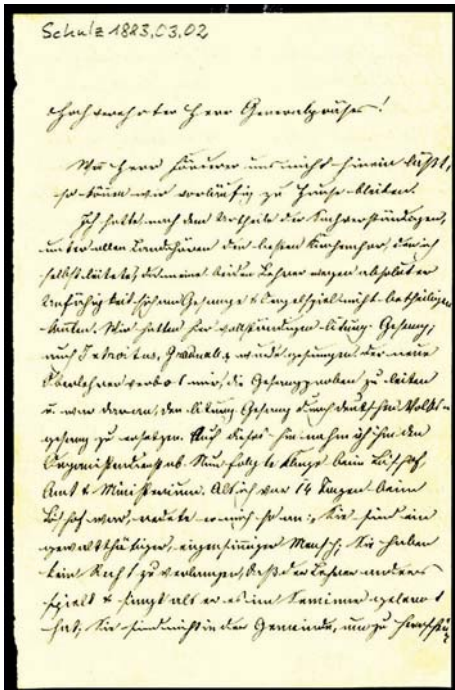 Schulz 1883.03.02
Hochverehrter Herr Generalpräses!
Herr uns nicht hinein läßt,
so können wir vorläufig zu Hause bleiben.
Ich hatte nach dem Urtheile der Sachverständigen,
unter allen Landchören den besten Kirchenchor, den ich
selbst leitete, da meine beiden Lehrer wegen absoluter
Unfähigkeit sich am Gesange & Orgelspiel nicht betheiligen
konnten. Wir hatten hier vollständigen liturg. Gesang;
auch Introitus, Graduale wurde gesungen. Der neue
Oberlehrer verbot mir, die Gesangproben zu leiten
u. war daran, den liturg. Gesang durch deutschen Volks=
gesang zu ersetzen. Auf dieses hin nahm ich ihm den
Organistendienst ab. Nun folgte Klage beim Bischof,
Amt & Ministerium. Als ich vor 14 Tagen beim
Bischof war, redete er mich so an: „Sie sind ein
gewaltthätiger, eigensinniger Mensch; Sie haben
kein Recht zu verlangen, daß der Lehrer anders
spielt & singt als er es im Seminar gelernt
hat; Sie sind nicht in der Gemeinde, um zu